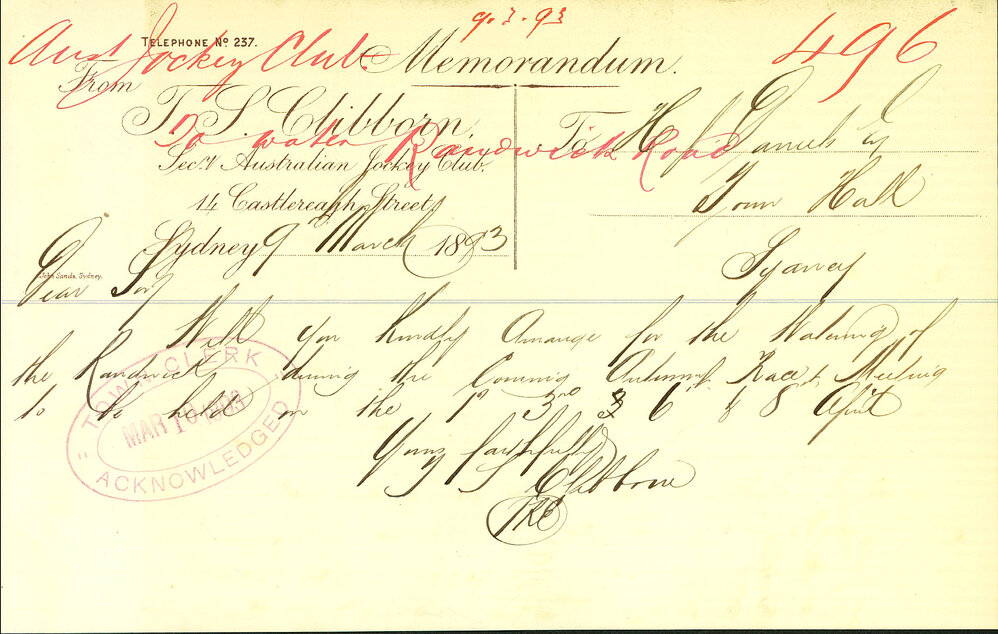 9.3.93
TELEPHONE No 237.
Aust Jockey Club
496
Memorandum.
From
T. S. Clibborn,
To H. J. Daniels Esq
To water Randwick Road
Sec.y Australian Jockey Club.
14 Castlereagh Street,
Town Hall
Sydney 9 March 1893
Sydney
John Sands, Sydney.
Dear Sir
Will you kindly arrange for the Watering of
the Randwick during the Coming Autumn Race Meeting
to be held on the 1st 3rd & 6 & 8 April
Yours faithfully
T S Clibborn
TOWN CLERK
MAR 10 1893
ACKNOWLEDGED